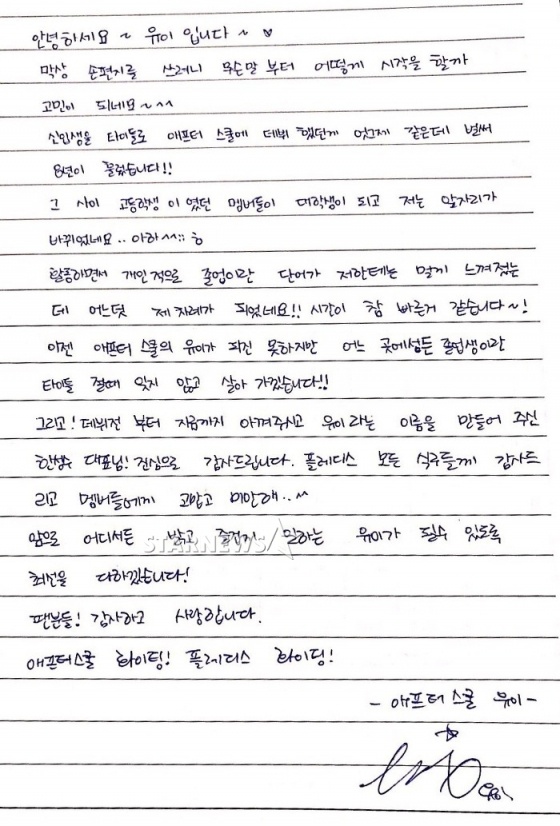 안녕하세요~ 유이 입니다~ ♡
막상 손편지를 쓰려니 무슨말 부터 어떻게 시작을 할까
고민이 되네요~^^
신입생을 타이틀로 애프터 스쿨에 데뷔 했던게 엊그제 같은데 벌써
8년이 흘렀습니다!!
그 사이 고등학생 이 였던 멤버들이 대학생이 되고 저는 앞자리가
바뀌었네요.. 아하^^;; ㅎ
활동하면서 개인적으로 졸업이란 단어가 저한테는 멀게 느껴졌는
데 어느덧 제 차례가 되었네요!! 시간이 참 빠른거 같습니다~!
이젠 애프터 스쿨의 유이가 되진 못하지만 어느 곳에성든 졸업생이란
타이틀 절때 잊지 않고 살아 가겠습니다!!
그리고! 데뷔전 부터 지금까지 아껴주시고 유이 라는 이름을 만들어 주신
한성수 대표님! 진심으로 감사드립니다. 플레디스 모든 식구들께 감사드
리고 멤버들에게 고맙고 미안해..^
앞으로 어디서든 밝고 즐겁게 일하는 유이가 될수 있도록
STARNEWS
최선을 다하겠습니다!
팬분들! 감사하고 사랑합니다.
애프터스쿨 화이팅! 플레디스 화이팅!
- 애프터 스쿨 유이 -